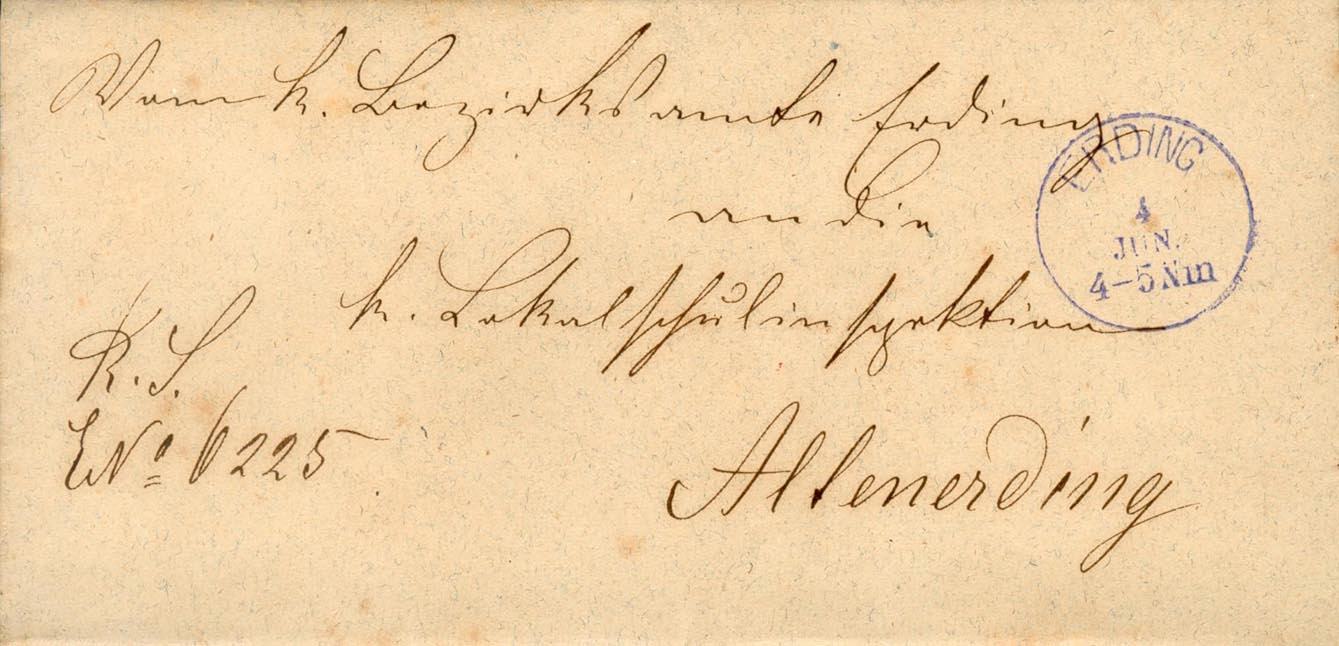 Vom k. Bezirksamte Erding
an die
k. Lokalschulinspektion
R. S.
ENo 6225
Altenerding
ERDING
4
JUN.
4-5 Nm